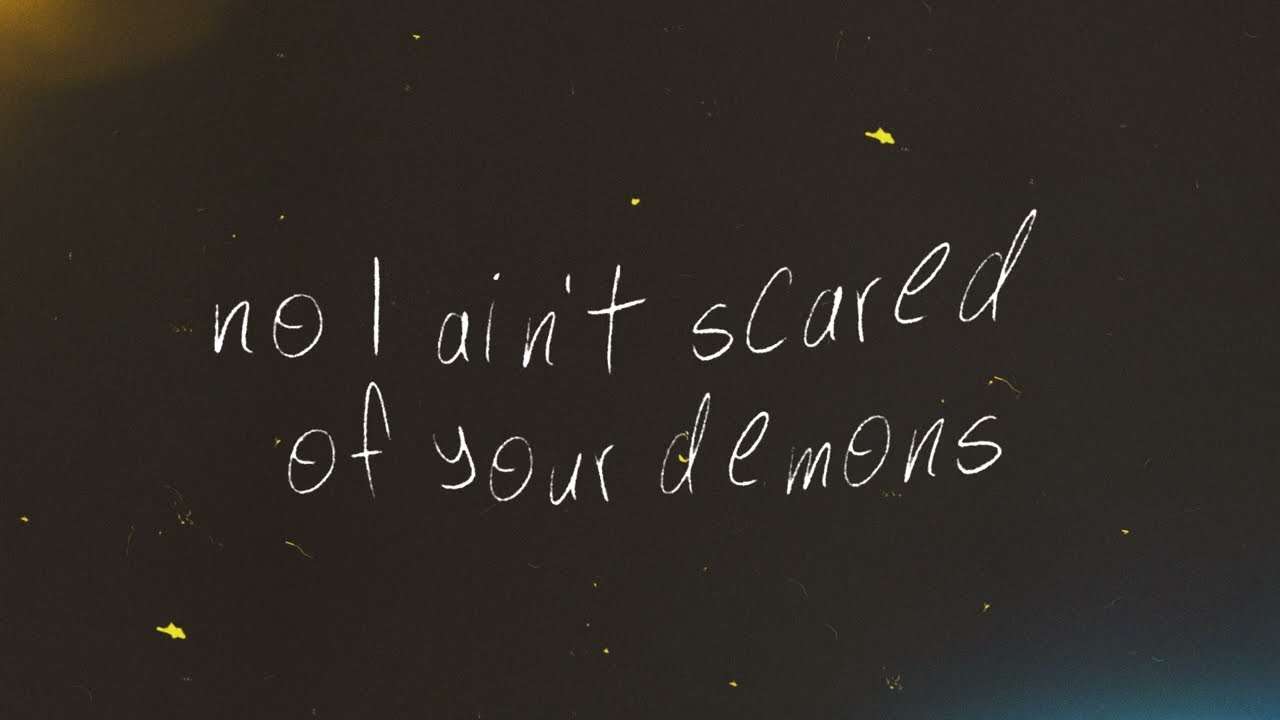 no I ain't scared
of your demons